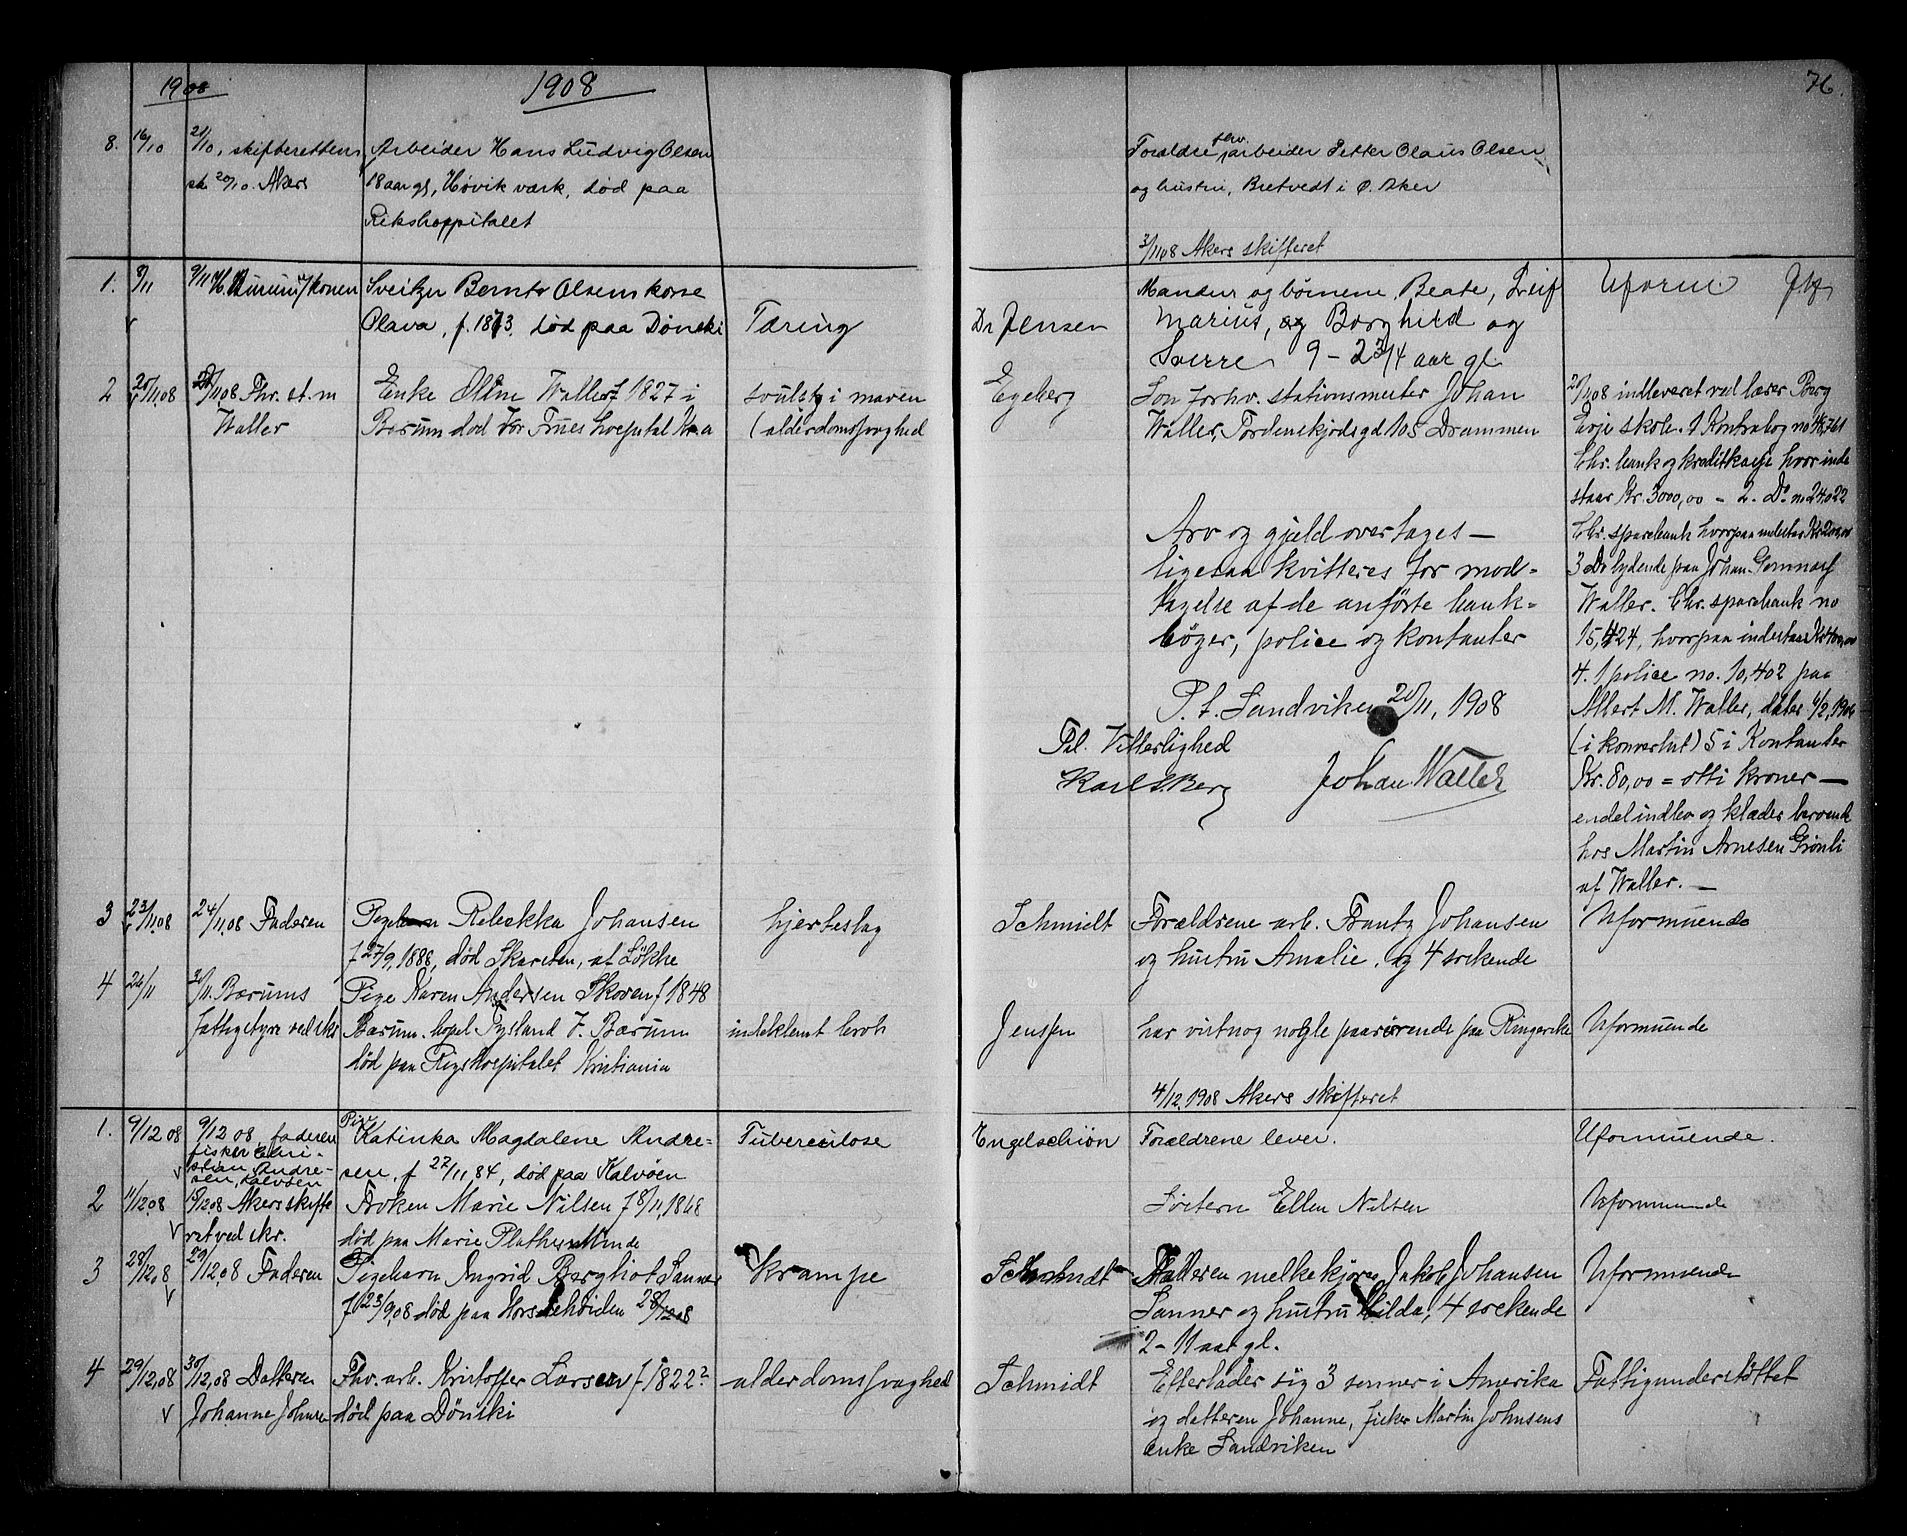 1908
1908
76.
8. 16/10 21/10, skifterettens Arbeider Hans Ludvig Olsen
20/10. Akers 18 aar gl, Høvik værk, død paa
Rikshospitalet
Forældre arbeider Petter Olaus Olsen
og hustru, Bretvedt i Ø. Aker
3/11 08 Akers skifteret
1. 8/11 9/11 konen Sveitzer Bernt Olsens kone
Olava, f. 1873, død paa Dønski Tæring
Dr Jensen
Manden og børnene Beate, Leif
Marius, Borghild og
Sverre 9 - 2 3/4 aar gl
Uform.
2 20/11,08 Fhv. st. m Enke Waller f 1827 i
Waller Bærum død Vor Frues hospital Kra
svulst i maven
(alderdomssvaghed
Egeberg
Søn forhv. stationsmester Johan
Waller, Tordenskjoldsgd 105 Drammen
Arv og gjæld overtages —
ligesaa kvitteres for mod-
tagelse af de anførte bank-
bøger, police og kontanter
P. t. Sandviken 20/11, 1908
Til Vitterlighed
Karl S. Berg Johan Waller
20/11 08 indleveret ved lærer Berg
Evje skole. 1 Kontrabog no
Chr. bank og kreditkasse hvor inde
staar Kr. 3000,00 - 2. Do no 24022
Chr. sparebank hvorpaa indestaar
3 Do lydende paa Johan
Waller. Chr. sparebank no
15,424, hvorpaa indestaar
4. 1 police no. 10,402 paa
Albert M. Waller,
(i konvolut) 5 i Kontanter
Kr. 80,00 = otti kroner —
endel indbo og klæder beroende
hos Martin Arnesen Grønli
af Waller. —
3 23/11,08 24/11,08 Faderen Rebekka Johansen
f 27/9, 1888, død Skaretten, at Løkke
hjerteslag
Schmidt
Forældrene arb. Frantz Johansen
og hustru Amalie, og 4 søskende
Uformuende
4 26/11 Bærums Pige Karen Andersen Skoven f 1848
fattigstyre ved skr Bærum. V. Bærum
død paa Rigshospitalet Kristiania
indeklemt brok
Jenssen
har vistnog nogle paarørende paa Ringerike
Uformuende
4/12, 1908 Akers skifteret
1. 9/12 08 9/12 08, faderen Pige Katinka Magdalene Andre-
fisker Chri-
stian Andre-
sen, Kalvøen
sen, f 27/11 84, død paa Kalvøen
Tuberculose
Engelschiøn
Forældrene lever.
Uformuende.
2 11/12 08 Akers skifte Frøken Marie Nilsen f 8/11, 1848
ret ved skr. død paa Marie Plathes Minde
Søstern Ellen Nilsen
Uformuende
3 28/12,08 29/12,08 Faderen Pigebarn Ingrid Bergliot Sanner
f 23/9,08 død paa 28/12 08
Krampe
Schmidt
Faderen melkekjører Jakob Johansen
Sanner og hustru Hilda, 4 søskende
2 - 11 aar gl.
Uformuende
4 29/12,08 30/12,08 Datteren Fhv. arb. Kristoffer Larsen f 1822?
Johanne Johnsen død paa Dønski
alderdomssvaghed
Schmidt
Efterlader sig 3 sønner i Amerika
og datteren Johanne, fisker Martin Johnsens
enke Sandviken
Fattigunderstøttet